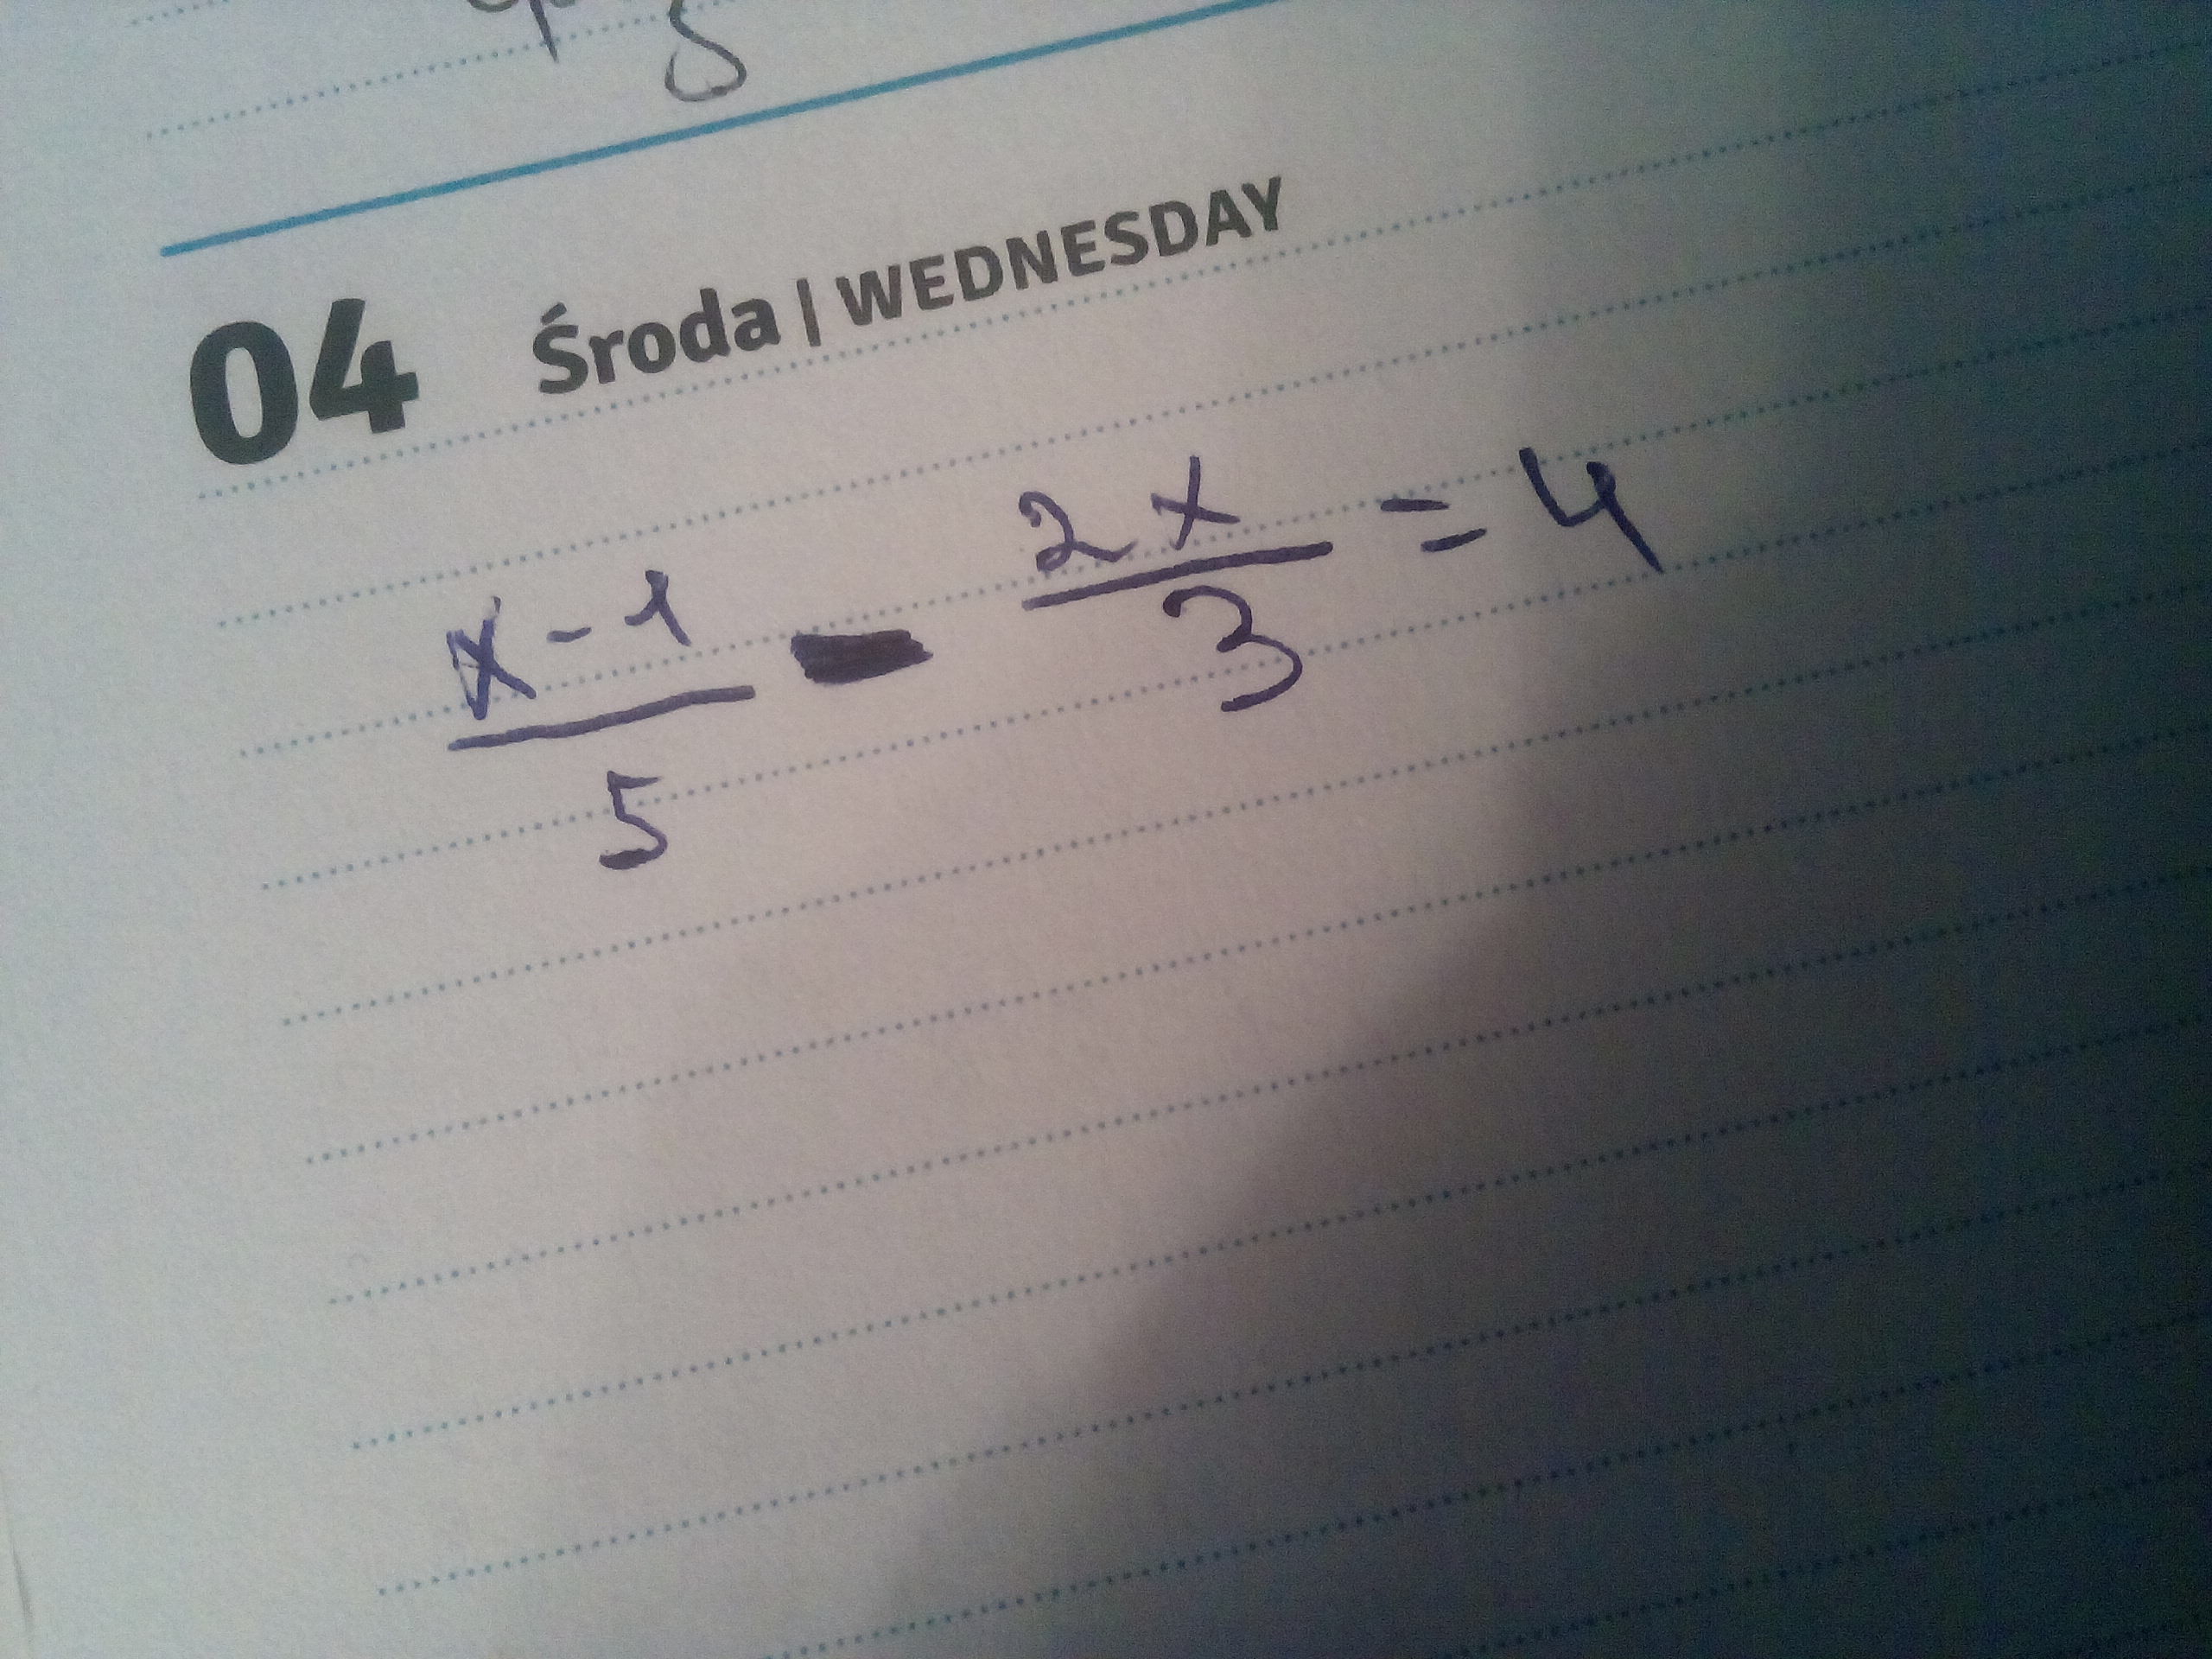 04 Środa | WEDNESDAY
x - 1 / 5 - 2x / 3 = 4